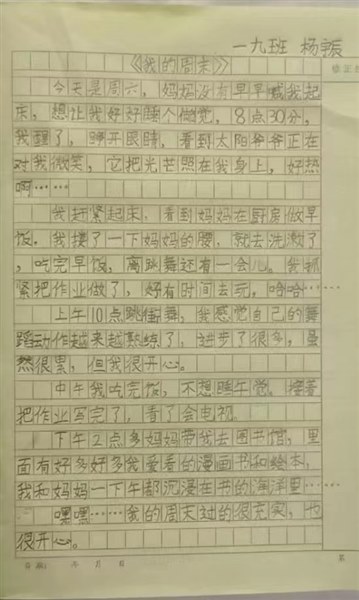 一九班 杨宸
《我的周末》
今天是周六，妈妈没有早早喊我起
床，想让我好好睡个懒觉，8点30分，
我醒了，睁开眼睛，看到太阳爷爷正在
对我微笑，它把光芒照在我身上，好热
啊……
我赶紧起床，看到妈妈在厨房做早
饭，我搂了一下妈妈的腰，就去洗漱了
，吃完早饭，离跳舞还有一会儿。我抓
紧把作业做了，好有时间去玩，哈哈……
上午10点跳街舞，我感觉自己的舞
蹈动作越来越熟练了，进步了很多，虽
然很累，但我很开心。
中午我吃完饭，不想睡午觉。接着
把作业写完了，看了会电视
下午2点多妈妈带我去图书馆，里
面有好多好多我爱看的漫画书和绘本，
我和妈妈一下午都沉浸在书的海洋里……
嘿嘿……我的周末过的很充实，也
很开心。
年 月 日
第